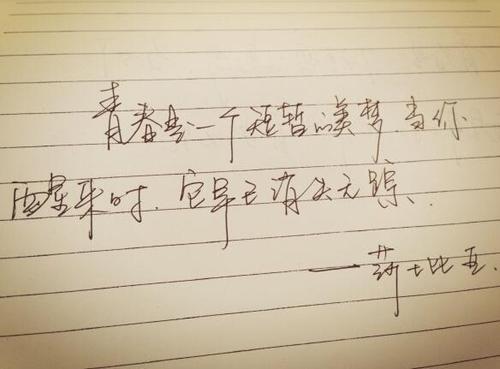 青春是一个短暂的美梦，当你
醒来时，它早已消失无踪。
——莎士比亚.